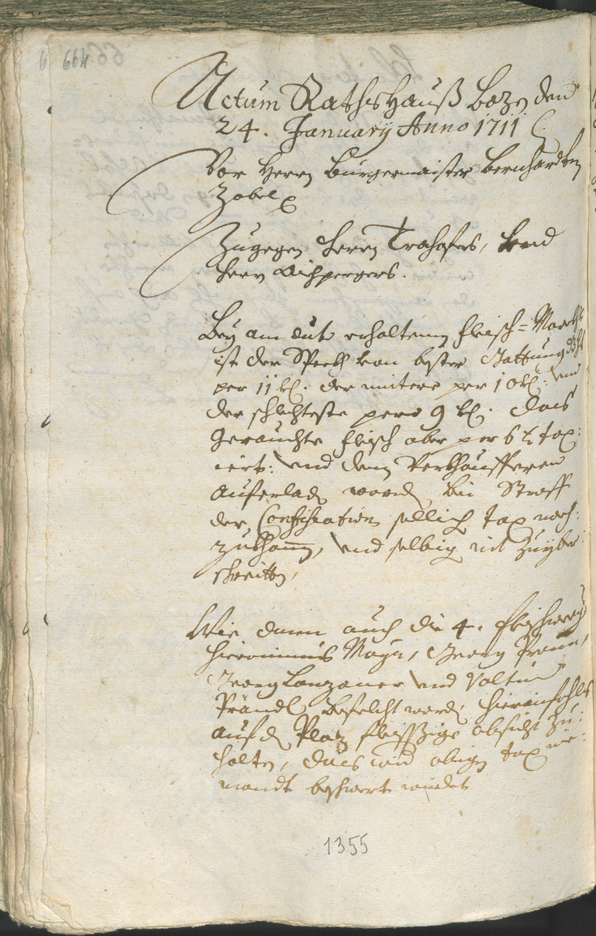 664
Actum RathsHauß Bozn den
24. January Anno 1711
Vor Herrn Burgermaister Bernhardten
Zobel
Zugegen Herrn Trohofer, vnd
Herrn Aichpergers.
Bey am dato erhaltenen Fleisch-Marckt
ist der Speckh von bester Gattung das lb
per 11 kr. der mitere per 10 kr: vnd
der schlechteste pero 9 kr. das
Gerauchte Fleisch aber per 6 kr tax:
iert: vnd dem Verkhaufferen
auferladen worden, bei Straff
der Confiscation sellich tax nach:
zukhomen, vnd selbig nit zuyber:
schreitten,
Wie dann auch die 4. Fleischwög
Hieronimus Mayr, Georg Prann,
Georg Lanzaner vnd Valtin
Prändl befelcht worden hierinfohls
auf dem Plaz fleissige obsicht zu:
halten, das wider obigen tax nie:
mandt beschwert werde
1355